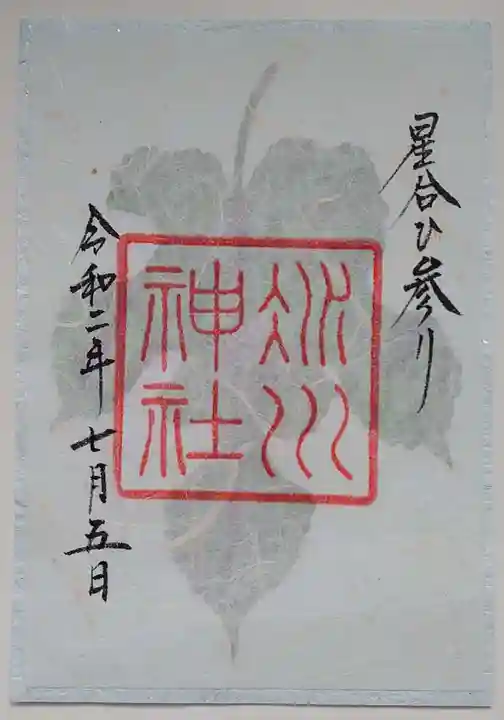 星合ひ参り
氷川
神社
令和二年七月五日